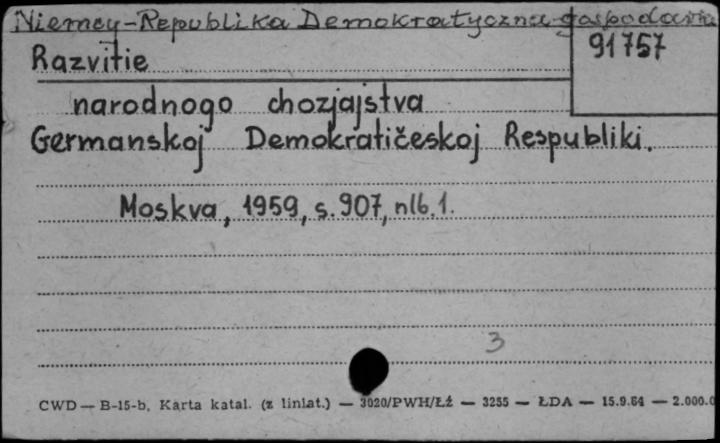 Niemcy-Republika Demokratyczna-gospodarka
91757
Razvitie
narodnogo chozjajstva
Germanskoj Demokratičeskoj Respubliki.
Moskva, 1959, s. 907, nlb. 1.
3
CWD — B-15-b, Karta katal. (z liniat.) — 3020/PWH/Łź — 3255 — ŁDA — 15.9.64 — 2.000.0